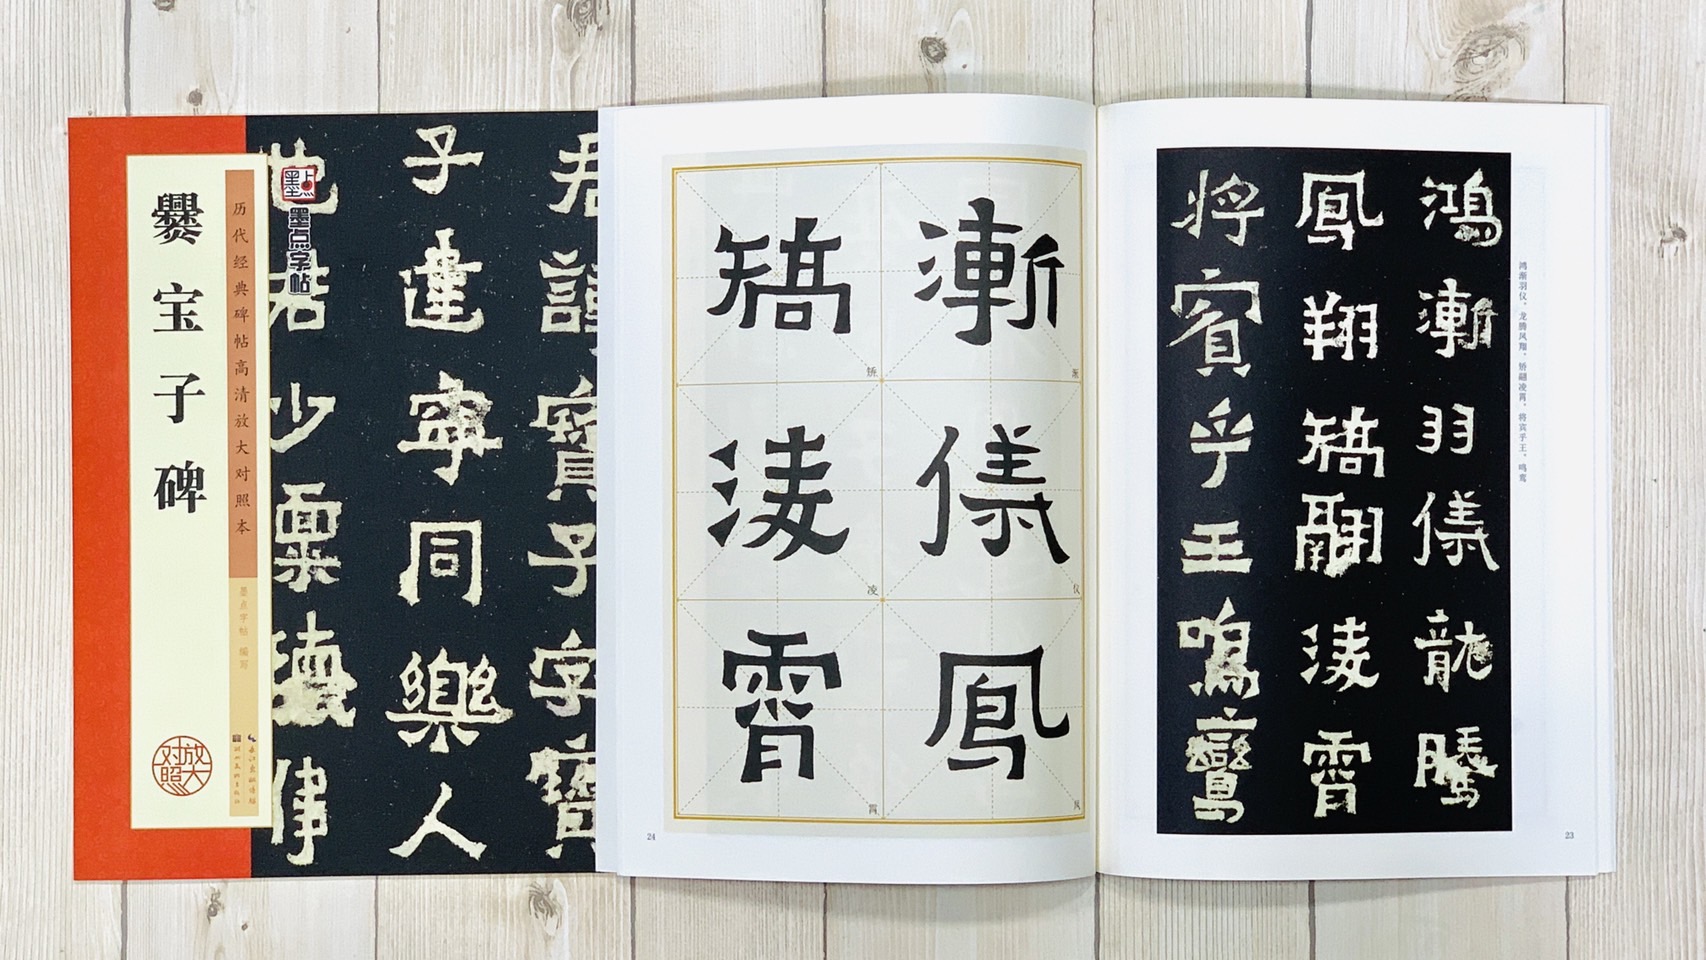 爨宝子碑
历代经典碑帖高清放大对照本
墨点字帖 编写
放大对照
墨点
墨点字帖
长江出版传媒
湖北美术出版社
子達寧同樂人
漸儀鳳
矯淩霄
渐
仪
凤
矫
凌
霄
24
鴻漸羽儀龍騰
鳳翔矯翮淩霄
將賓乎王鳴鸞
鸿渐羽仪，龙腾凤翔，矫翮凌霄。将宾乎王，鸣鸾
23